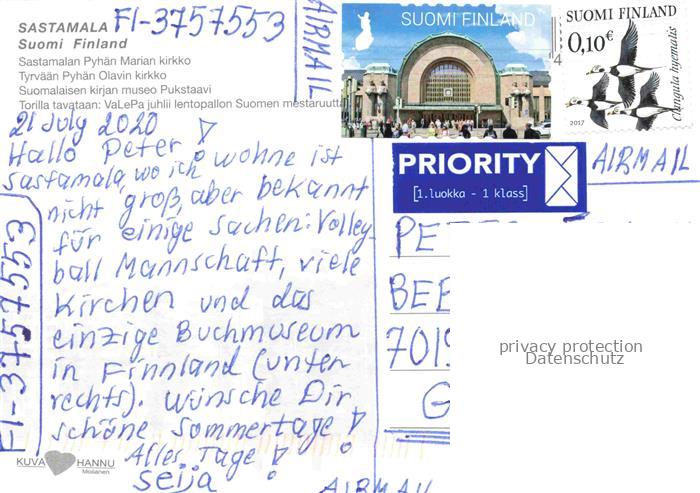 SASTAMALA FI-3757553
Suomi Finland
Sastamalan Pyhän Marian kirkko
Tyrvään Pyhän Olavin kirkko
Suomalaisen kirjan museo Pukstaavi
Torilla tavataan: VaLePa juhlii lentopallon Suomen mestaruutt
21 July 2020
Hallo Peter!
Sastamala, wo ich wohne ist
nicht groß, aber bekannt
für einige Sachen: Volley-
ball Mannschaft, viele
Kirchen und das
einzige Buchmuseum
in Finnland (unten
rechts). Wünsche Dir
schöne Sommertage!
Alles Tage!
Seija
FI-3757553
KUVA HANNU
Miilanen
AIRMAIL
SUOMI FINLAND
SUOMI FINLAND
0,10€
Clangula hyemalis
2017
4
PRIORITY
[1.luokka - 1 klass]
AIRMAIL
PE
BEE
701
G
privacy protection
Datenschutz
AIRMAIL